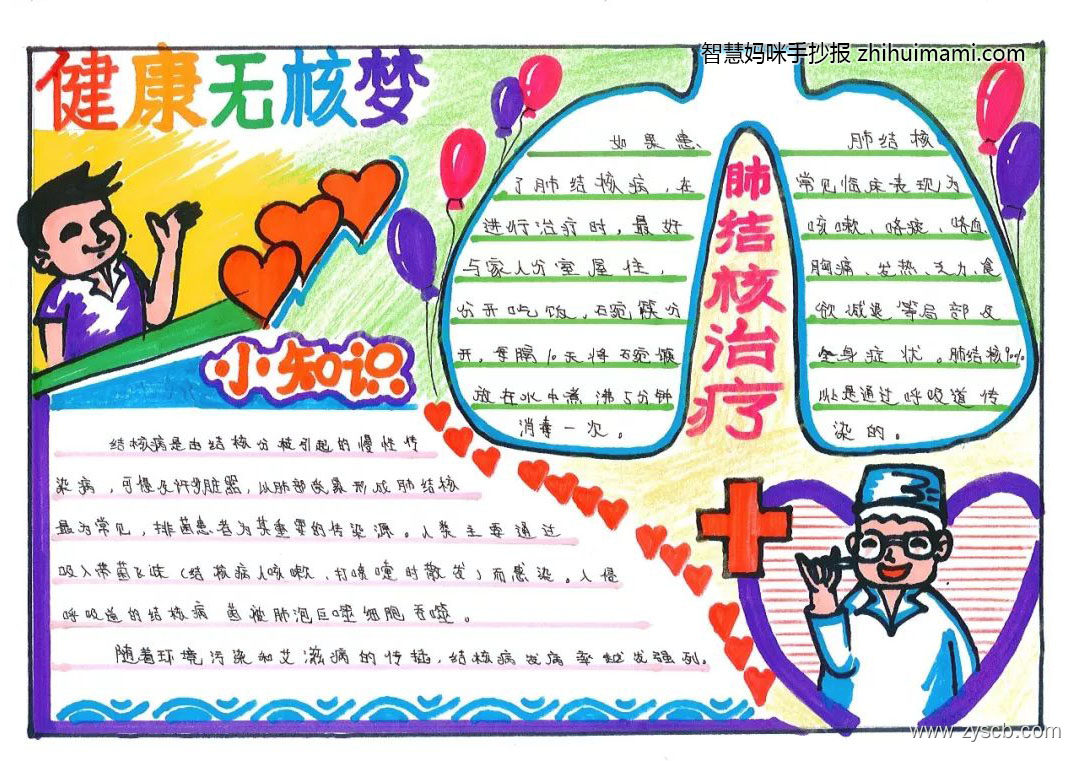 智慧妈咪手抄报 zhihuimami.com
健康无核梦
如果患
了肺结核病，在
进行治疗时，最好
与家人分室居住，
分开吃饭，碗筷分
开，每隔10天将碗筷
放在水中煮沸5分钟
消毒一次。
肺结核治疗
肺结核
常见临床表现为
咳嗽、咯痰、咯血、
胸痛、发热、乏力、食
欲减退等局部及
全身症状。肺结核90%
以是通过呼吸道传
染的。
小知识
结核病是由结核分枝引起的慢性传
染病，可侵及许多脏器，以肺部受累形成肺结核
最为常见，排菌患者为其重要的传染源。人类主要通过
吸入带菌飞沫（结核病人咳嗽、打喷嚏时散发）而感染。入侵
呼吸道的结核病菌被肺泡巨噬细胞吞噬。
随着环境污染和艾滋病的传播，结核病发病率越发强列。
www.zyscb.com